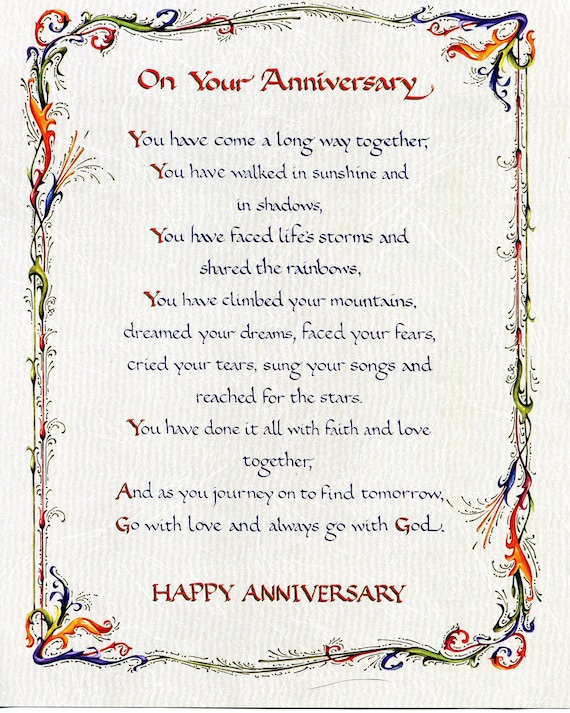 On Your Anniversary
You have come a long way together,
You have walked in sunshine and
in shadows,
You have faced life's storms and
shared the rainbows,
You have climbed your mountains,
dreamed your dreams, faced your fears,
cried your tears, sung your songs and
reached for the stars.
You have done it all with faith and love
together,
And as you journey on to find tomorrow,
Go with love and always go with God.
HAPPY ANNIVERSARY